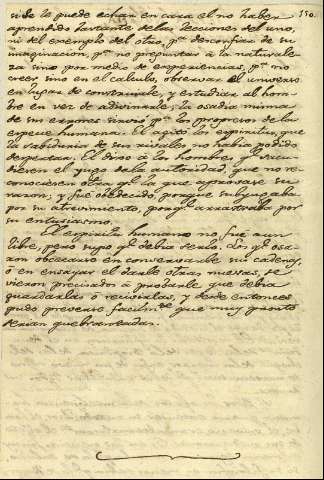 150.
nir. Se le puede echar en cara el no haber
aprendido bastante de las lecciones del uno,
ni del exemplo del otro, p.ª desconfiar de su
imaginacion, p.ª no preguntar à la naturale-
za sino por medio de experiencias, p.ª no
creer sino en el calculo, observar el universo
en lugar de construirle, y estudiar al hom-
bre en vez de adivinarle; la osadia misma
de sus errores sirvió p.ª los progresos de la
especie humana. El agitó los espiritus, que
la sabiduria de sus rivales no habia podido
despertar. El dixo à los hombres q.e sacu-
diesen el yugo de la autoridad, que no re-
conociesen otra q.e la que aprobase su
razon; y fue obedecido porque subyugaba
por su atrevimiento, porq.e arrastraba por
su entusiasmo.
El espiritu humano no fué aun
libre, pero supo q.e debia serlo. Los q.e osa-
ron obcecarse en conservarle sus cadenas,
ó en ensayar el darle otras nuevas, se
vieron precisados à probarle que debia
guardarlas ó recivirlas, y desde entonces
pudo preverse, facilm.te que muy pronto
serian quebrantadas.